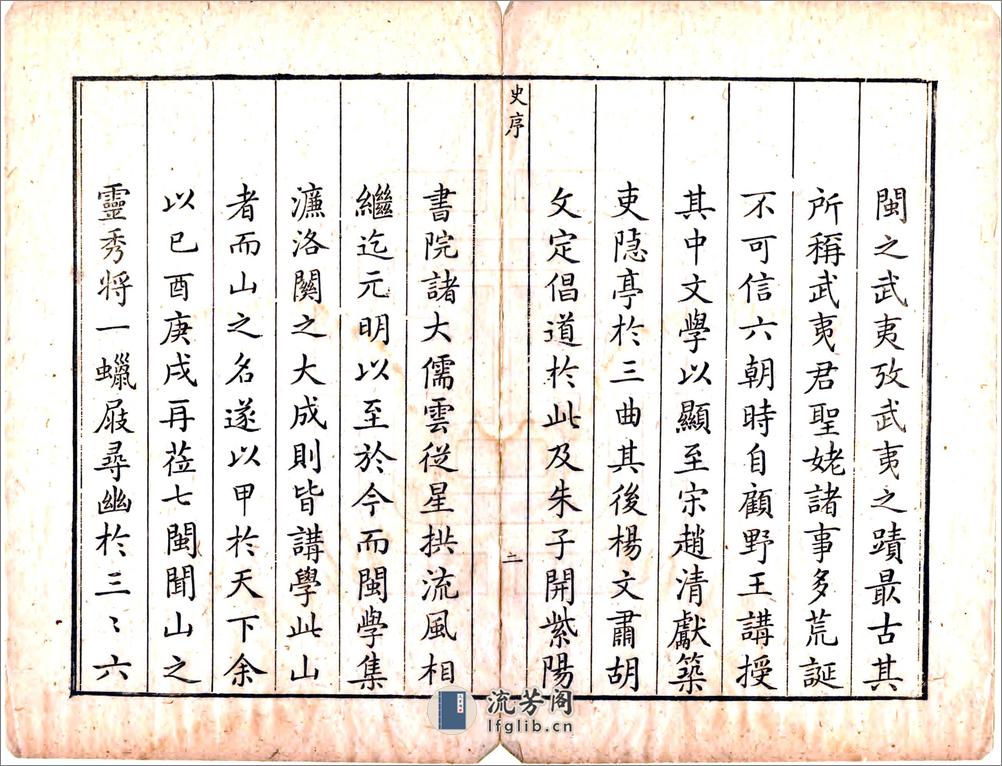 閩之武夷攷武夷之蹟最古其
所稱武夷君聖姥諸事多荒誕
不可信六朝時自顧野王講授
其中文學以顯至宋趙清獻築
吏隱亭於三曲其後楊文肅胡
文定倡道於此及朱子開紫陽
史序
二
書院諸大儒雲從星拱流風相
繼迄元明以至於今而閩學集
濂洛關之大成則皆講學此山
者而山之名遂以甲於天下余
以己酉庚戌再蒞七閩聞山之
靈秀將一蠟屐尋幽於三〻六
流芳阁
lfglib.cn